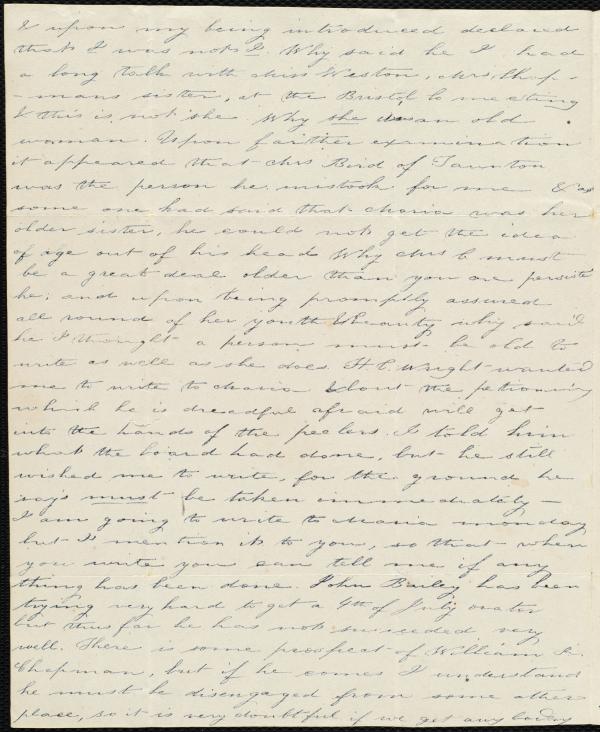 & upon my being introduced declared
that I was not I. Why said he I had
a long talk with Miss Weston, Mrs. Chap-
-mans sister, at the Bristol Co meeting
& this is not she Why she was an old
woman. Upon farther examination
it appeared that Mrs Bird of Taunton
was the person he mistook for me & as
some one had said that Maria was her
older sister, he could not get the idea
of age out of his head Why Mrs C must
be a great deal older than you are persisted
he; and upon being promptly assured
all round of her youth & beauty why said
he I thought a person must be old to
write as well as she does. H C Wright wanted
me to write to Maria about the petitioning
which he is dreadful afraid will get
into the hands of the peelers. I told him
what the board had done, but he still
wished me to write, for the ground he
says must be taken immediately —
I am going to write to Maria monday
but I mention it to you, so that when
you write you can tell me if any
thing has been done John Bailey has been
trying very hard to get a 4th of July orator
but thus far he has not succeeded very
well. There is some prospect of William
Chapman, but if he comes I understand
he must be disengaged from some other
place, so it is very doubtful if we get any body